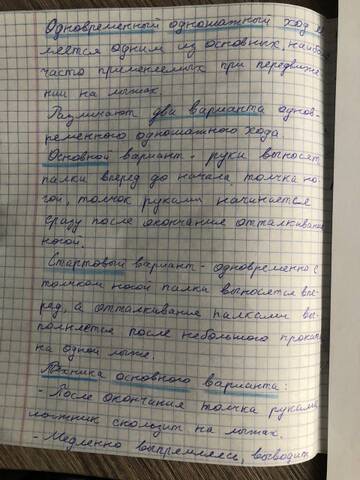 Одновременный одношажный ход
ляется одним из основных, наибо
часто применяемых при передвиже
нии на лыжах
Различают два варианта однов-
ременного одношажного хода.
Основной вариант - руки выносят
палки вперед до начала толчка но-
гой, толчок руками начинается
сразу после окончание отталкивания
ногой.
Стартовый вариант - одновременно с
толчком ногой палки выносятся впе-
ред, а отталкивание палками вы-
полняется после небольшого прокат
на одной лыже.
Техника основного варианта:
- После окончания толчка руками
лыжник скользит на лыжах.
- Медленно выпрямляясь, выводит